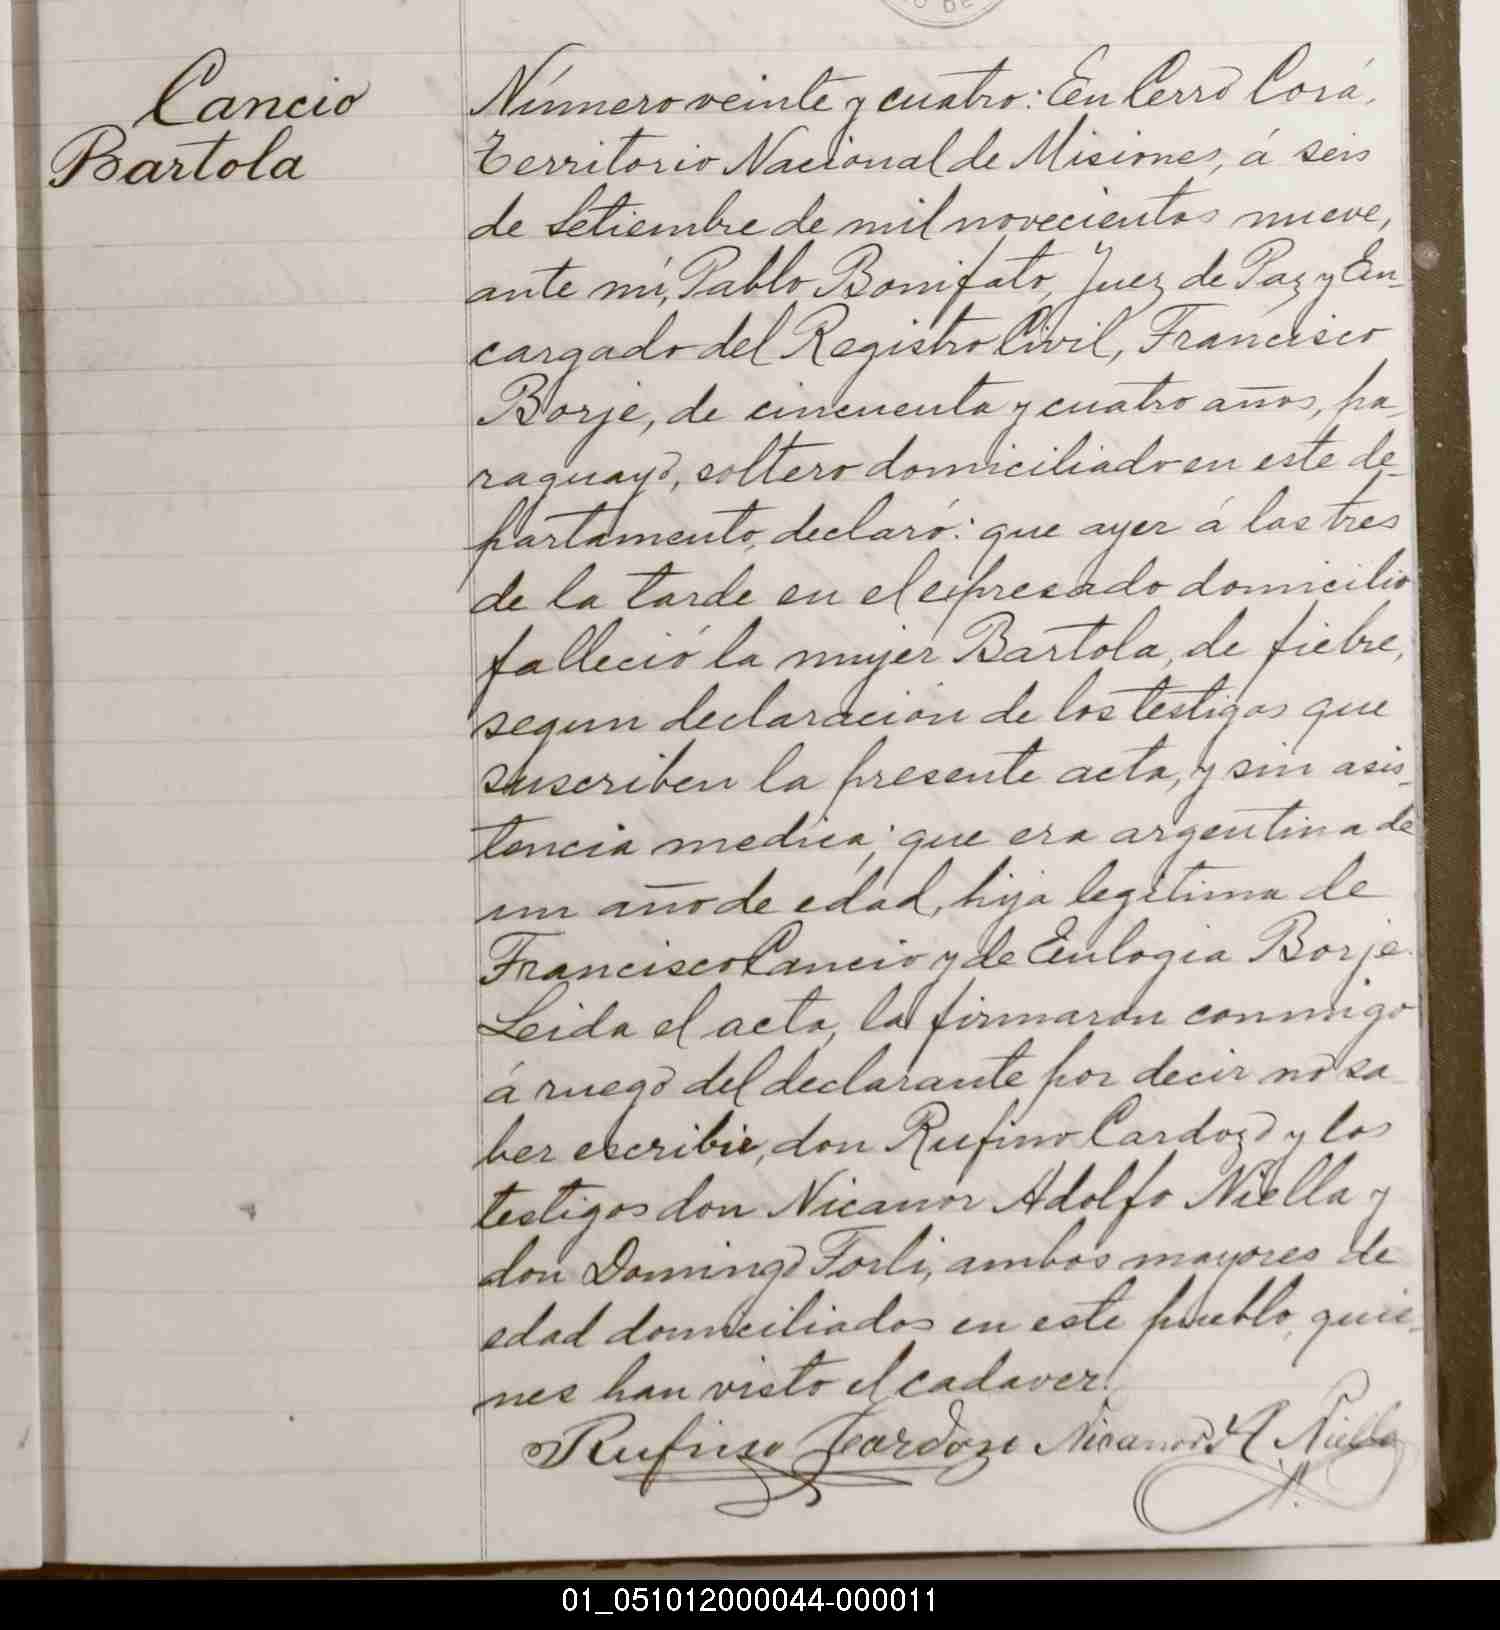 Cancio
Bartola
Número veinte y cuatro: En Cerro Corá,
Territorio Nacional de Misiones, á seis
de Setiembre de mil novecientos nueve,
ante mí, Pablo Bonifato, Juez de Paz y En-
cargado del Registro Civil, Francisco
Borje, de cincuenta y cuatro años, pa-
raguayo, soltero domiciliado en este de-
partamento, declaró: que ayer á las tres
de la tarde en el espresado domicilio
falleció la mujer Bartola, de fiebre,
segun declaración de los testigos que
suscriben la presente acta, y sin asis-
tencia medica; que era argentina de
un año de edad, hija legítima de
Francisco Cancio y de Eulogia Borje.
Leida el acta, la firmaron conmigo
á ruego del declarante por decir no sa-
ber escribir, don Rufino Cardozo y los
testigos don Nicanor Adolfo Niella y
don Domingo Forli, ambos mayores de
edad domiciliados en este pueblo, quie-
nes han visto el cadaver.
Rufino Cardozo Nicanor A. Niella
01_051012000044-000011